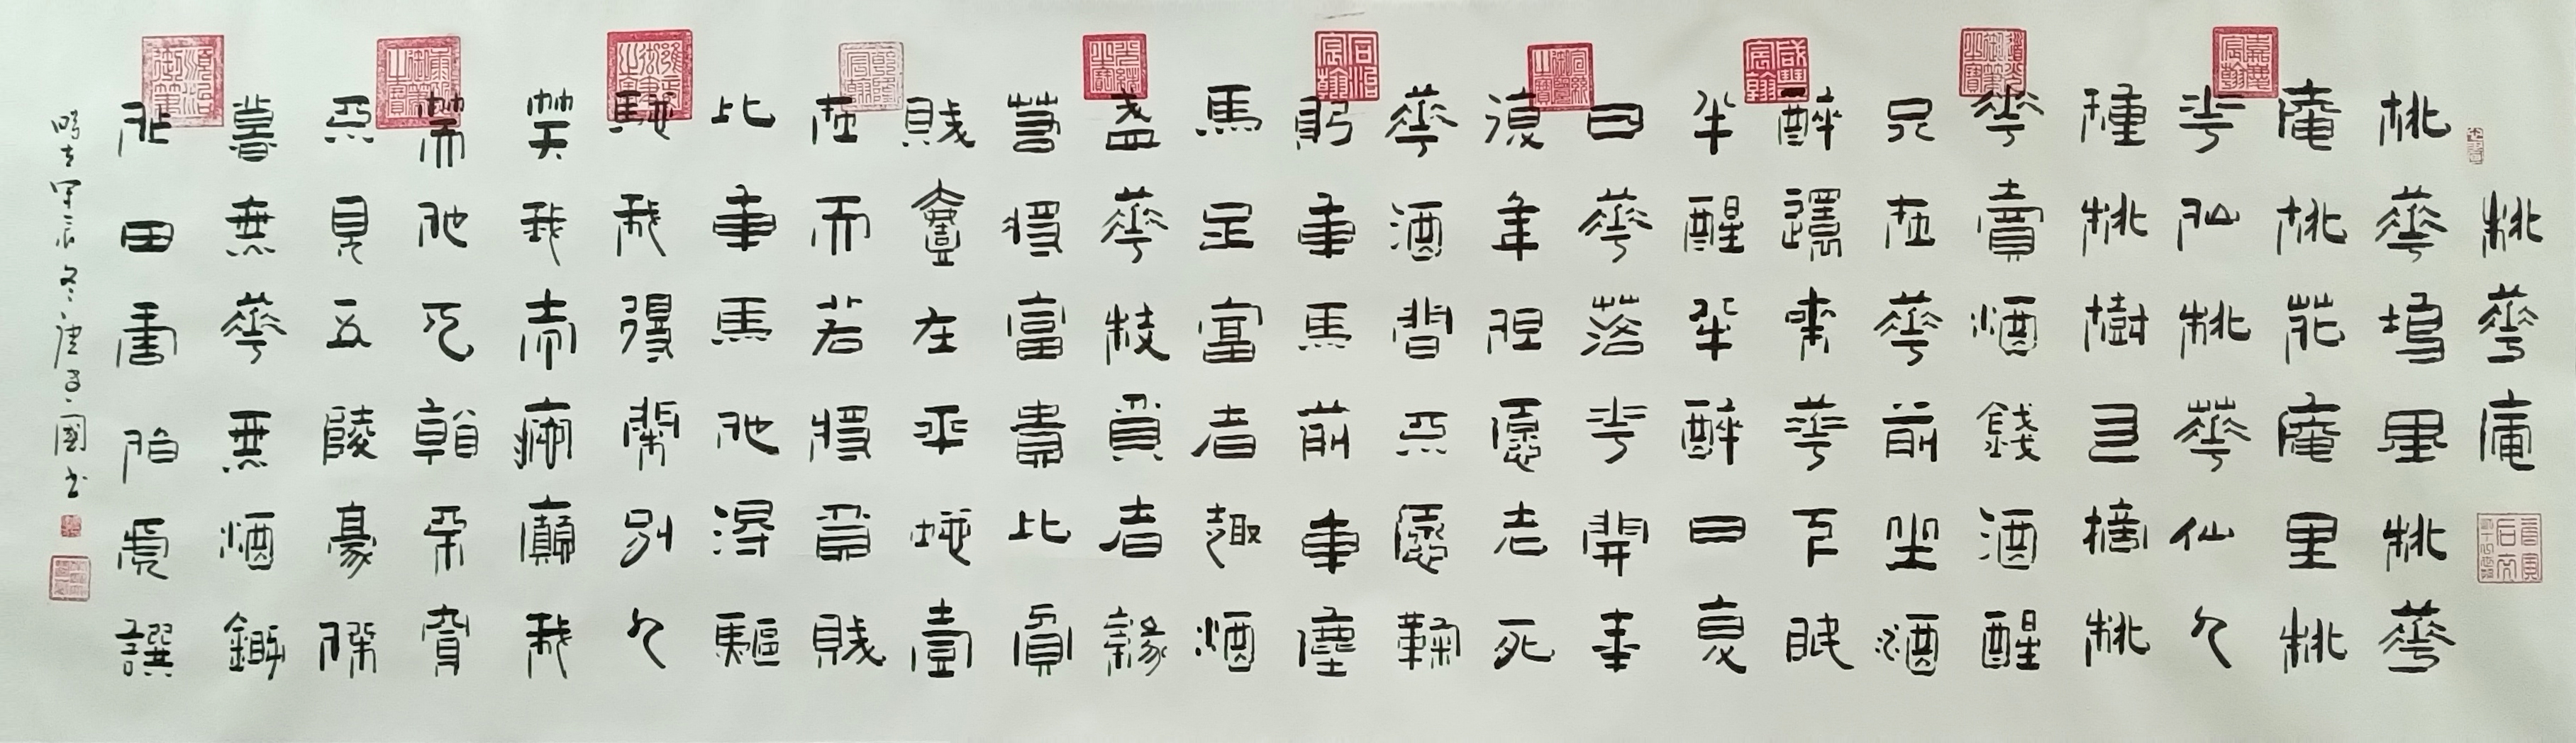 桃華庵
桃華塢里桃華
庵桃花庵里桃
華仙桃華仙人
種桃樹又摘桃
華賣酒錢酒醒
只在華前坐酒
醉還來華下眠
半醒半醉日復
日華落華開年
復年但愿老死
華酒間不愿鞠
躬車馬前車塵
馬足富者趣酒
盞華枝貧者緣
若將富貴比貧
賤壹在平地壹
在天若將貧賤
比車馬他得驅
馳我得閑別人
笑我忒瘋癲我
笑他人看不穿
不見五陵豪傑
墓無華無酒鋤
作田唐伯虎譔
時在甲辰冬國書